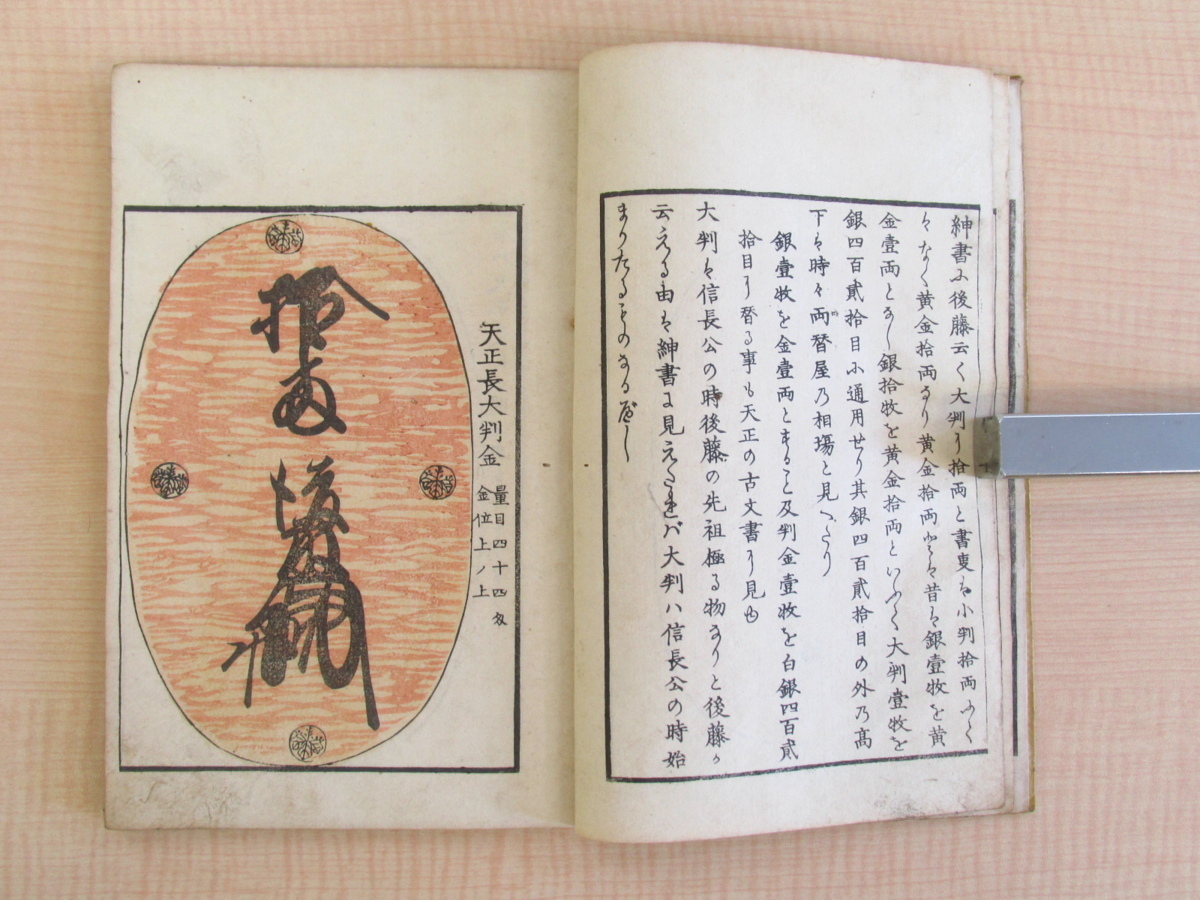 紳書に後藤云く大判に拾両と書裏は小判拾両ふく
はなく黄金拾両なり黄金拾両と昔は銀壹牧を黄
金壹両とし銀拾牧を黄金拾両といふく大判壹牧を
銀四百貳拾目に通用せり其銀四百貳拾目の外乃高
下は時々両替屋乃相場と見へたり
銀壹牧を金壹両とする及判金壹牧を白銀四百貳
拾目に替る事も天正の古文書に見ゆ
大判は信長公の時後藤の先祖極る物なりと後藤か
云える由は紳書に見えたれバ大判ハ信長公の時始
まりたるものなるべし
天正長大判金
量目四十四匁
金位上ノ上
拾両
後藤